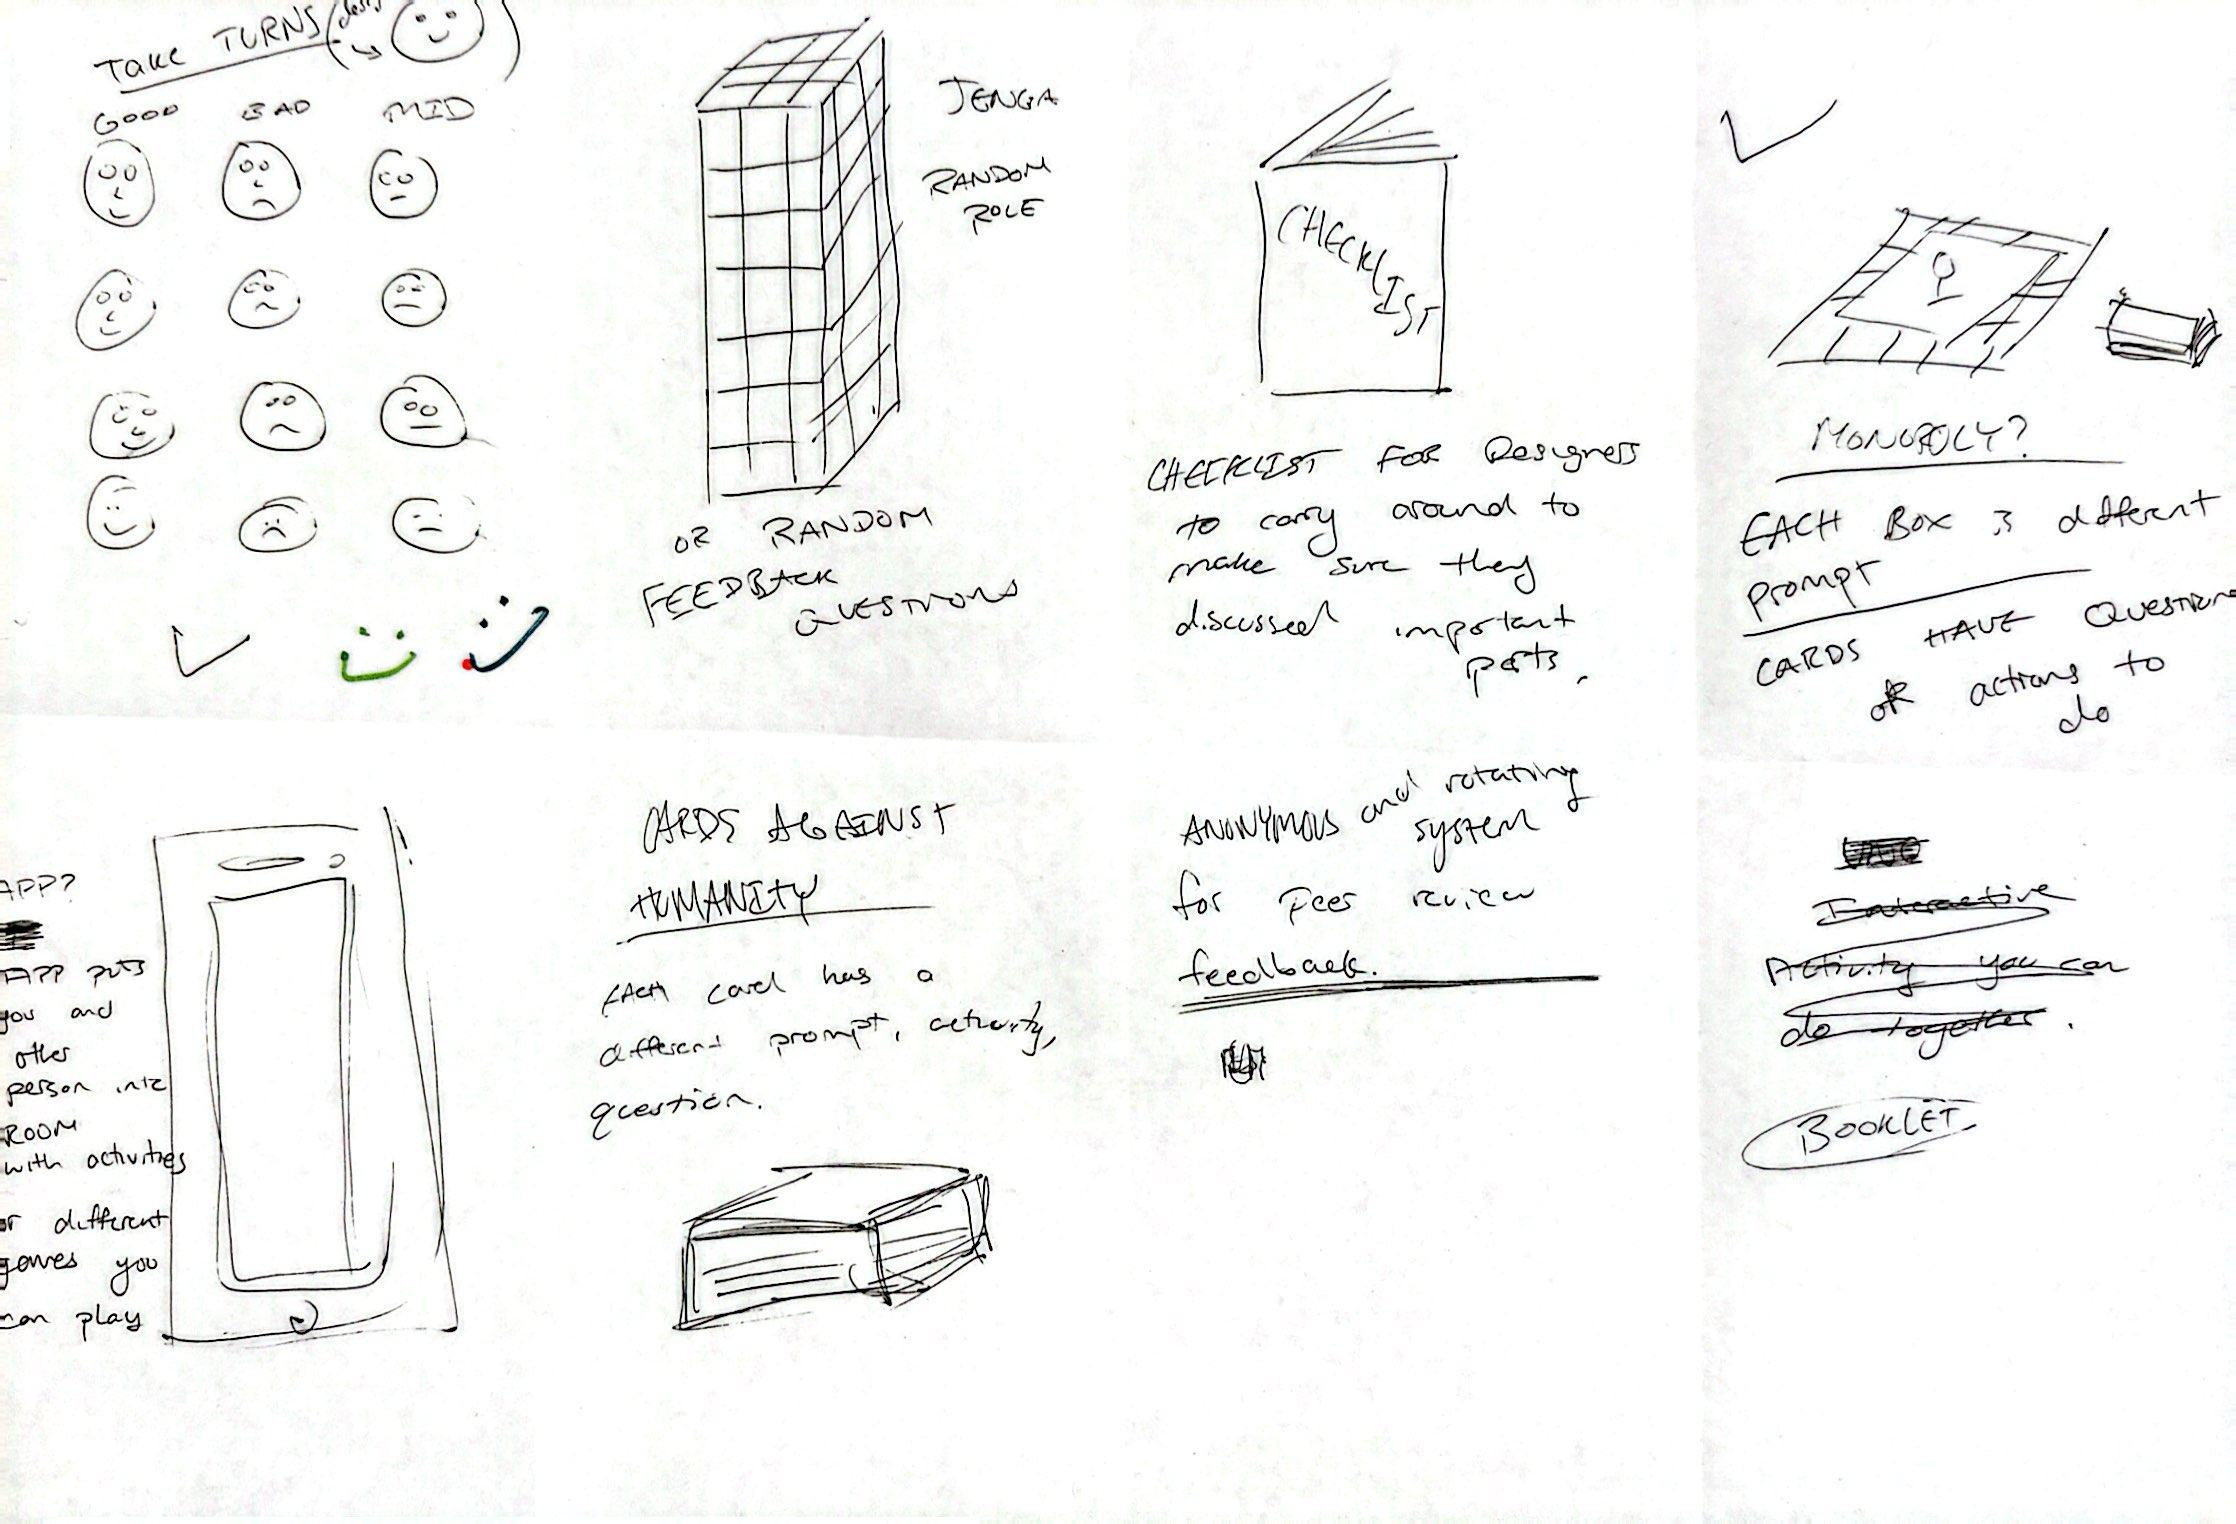 TAKE TURNS (
GOOD BAD MID
JENGA
RANDOM
ROLE
OR RANDOM
FEEDBACK
QUESTIONS
CHECKLIST
CHECKLIST FOR Designers
to carry around to
make sure they
discussed important
parts.
MONOPOLY?
EACH BOX is different
prompt
CARDS HAVE QUESTIONS
OR actions to
do
APP?
APP puts
you and
other
person into
ROOM
with activities
or different
games you
can play
CARDS AGAINST
HUMANITY
EACH card has a
different prompt, activity,
question.
ANONYMOUS and rotating
system
for peer review
feedback.
Interactive
Activity you can
do together.
BOOKLET